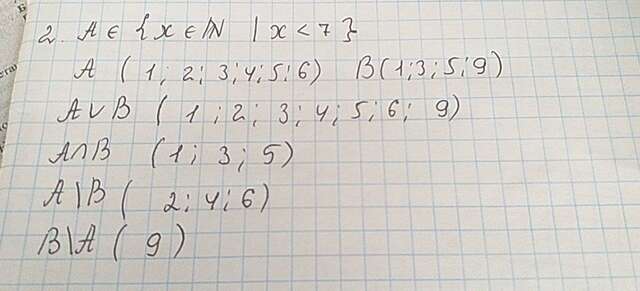 2. A ∈ {x ∈ N | x < 7}
A (1; 2; 3; 4; 5; 6) B(1; 3; 5; 9)
A∨B (1; 2; 3; 4; 5; 6; 9)
A∩B (1; 3; 5)
A\B (2; 4; 6)
B\A (9)